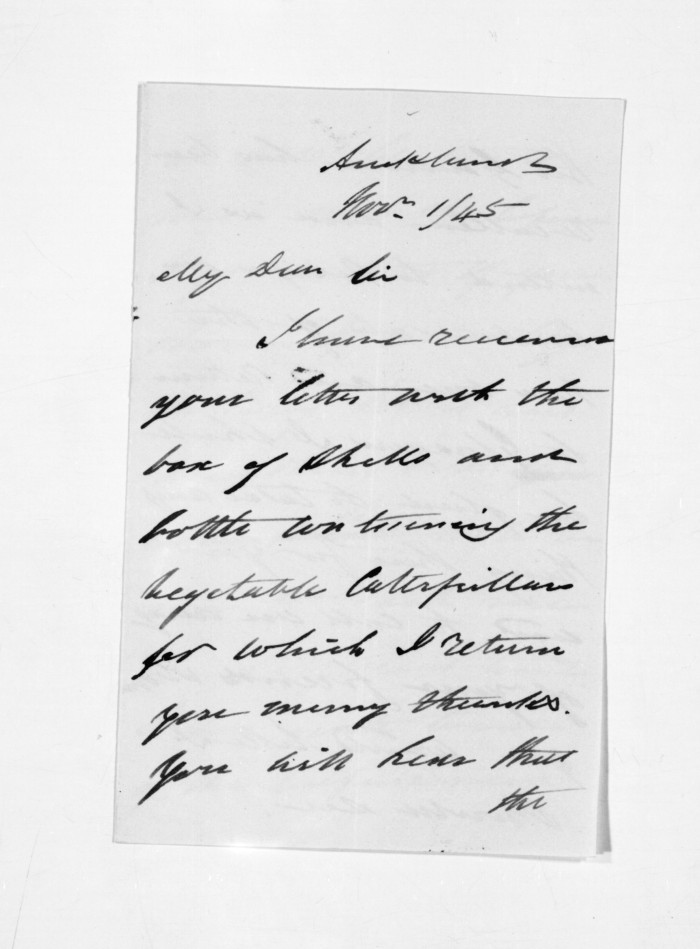 Auckland
Novr 1/45
My Dear Sir
I have received
your letter with the
box of Shells and
bottle containing the
vegetable Caterpillars
for which I return
you many thanks.
You will hear that
the